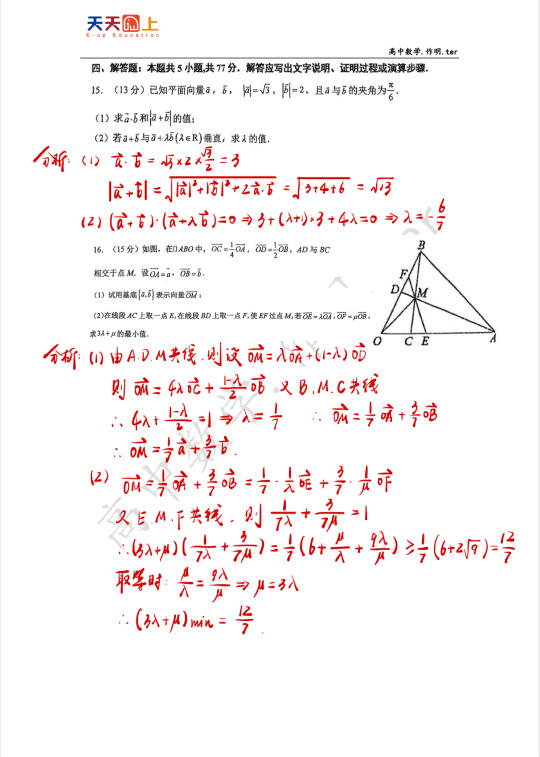 天天向上
E-up Education
高中数学.作明.ter
四、解答题：本题共5小题,共77分．解答应写出文字说明、证明过程或演算步骤．
15．（13分）已知平面向量a⃗，b⃗，|a⃗|=√3，|b⃗|=2，且a⃗与b⃗的夹角为π/6．
（1）求a⃗·b⃗和|a⃗+b⃗|的值；
（2）若a⃗+b⃗与a⃗+λb⃗(λ∈R)垂直，求λ的值．
分析：(1) a⃗·b⃗=√3×2×√3/2=3
|a⃗+b⃗|=√(|a⃗|²+|b⃗|²+2a⃗·b⃗)=√(3+4+6)=√13
(2) (a⃗+b⃗)·(a⃗+λb⃗)=0⇒3+(λ+1)×3+4λ=0⇒λ=-6/7
16．（15分）如图，在□ABO中，OC⃗=1/4OA⃗，OD⃗=1/2OB⃗，AD与BC
相交于点M．设OA⃗=a⃗，OB⃗=b⃗．
（1）试用基底{a⃗,b⃗}表示向量OM⃗；
（2）在线段AC上取一点E,在线段BD上取一点F,使EF过点M,若OE⃗=λOA⃗,OF⃗=μOB⃗,
求3λ+μ的最小值．
B
F
D
M
O
C
E
A
分析：(1) 由A.D.M共线.则设OM⃗=λOA⃗+(1-λ)OD⃗
则OM⃗=4λOC⃗+(1-λ)/2OB⃗ 又B.M.C共线
∴4λ+(1-λ)/2=1⇒λ=1/7 ∴OM⃗=1/7OA⃗+3/7OB⃗
∴OM⃗=1/7a⃗+3/7b⃗.
(2) OM⃗=1/7OA⃗+3/7OB⃗=1/7·1/λOE⃗+3/7·1/μOF⃗
又E.M.F共线.则1/7λ+3/7μ=1
∴(3λ+μ)(1/7λ+3/7μ)=1/7(6+μ/λ+9λ/μ)≥1/7(6+2√9)=12/7
取等时：μ/λ=9λ/μ⇒μ=3λ
∴(3λ+μ)min=12/7.
高中数学·作